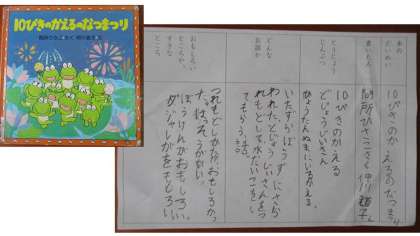 10ぴきのかえるのなつまつり
間所ひさこ さく 仲川道子 え
本の
だいめい
10ぴきのかえるのなつまつり
書いた人
間所ひさこさく 仲川道子え
とうじょう
じんぶつ
10ぴきのかえる
どじょうじいさん
ひょうたんぬまにいるかえる
どんな
お話か
いたずらぼうずにさら
われたどじょうじいさんをつ
れもどして
てもらう話
おもしろい
ところや、
すきな
ところ
つれもどしかたがおもしろかっ
た。はっそうがいい。
ぼうけんがおもしろい。
ダジャレがおもしろい。